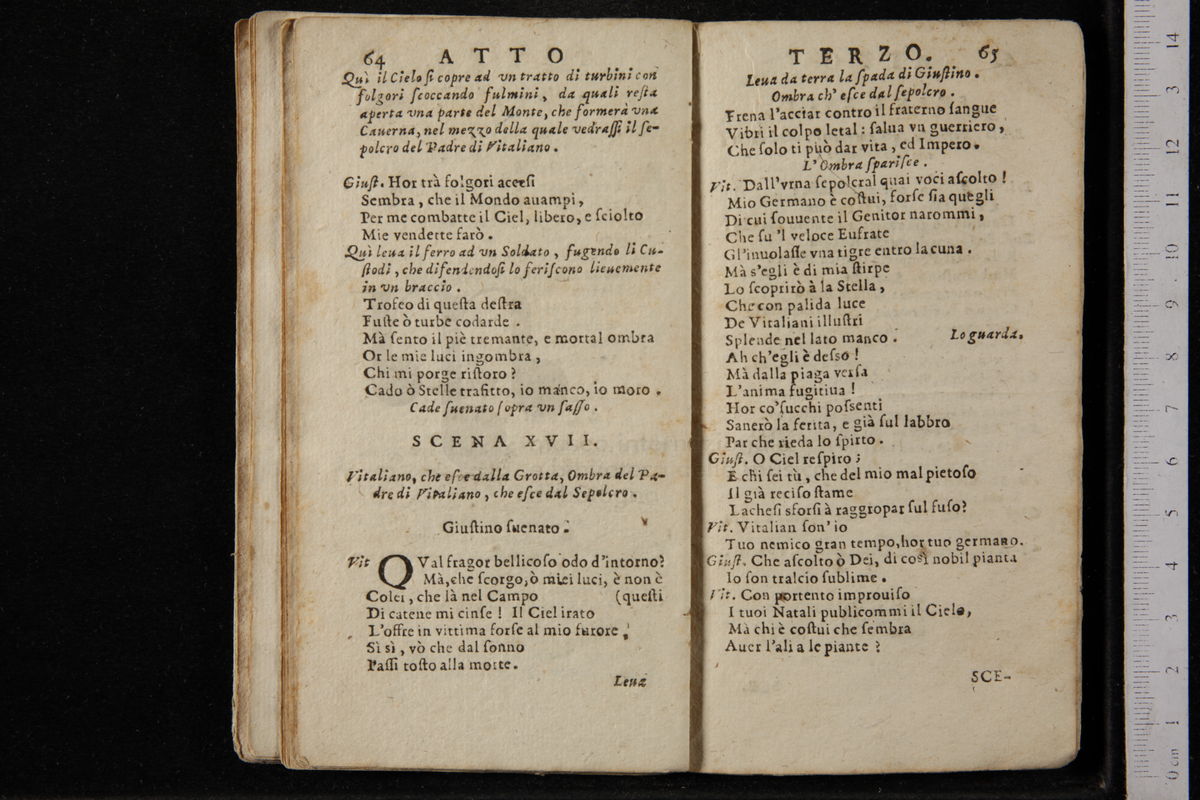 64 ATTO
Quì il Cielo ſi copre ad vn tratto di turbini con
folgori ſcoccando fulmini, da quali reſta
aperta vna parte del Monte, che formerà vna
Cauerna, nel mezzo della quale vedraſſi il ſe-
polcro del Padre di Vitaliano.
Giuſt. Hor trà folgori acceſi
Sembra, che il Mondo auampi,
Per me combatte il Ciel, libero, e ſciolto
Mie vendette farò.
Quì leua il ferro ad vn Soldato, fugendo li Cu-
ſtodi, che difendendoſi lo feriſcono lieuemente
in vn braccio.
Trofeo di queſta deſtra
Fuſte ò turbe codarde.
Mà ſento il piè tremante, e mortal ombra
Or le mie luci ingombra,
Chi mi porge riſtoro?
Cado ò Stelle trafitto, io manco, io moro.
Cade ſuenato ſopra vn ſaſſo.
SCENA XVII.
Vitaliano, che eſce dalla Grotta, Ombra del Pa-
dre di Vitaliano, che eſce dal Sepolcro.
Giuſtino ſuenato.
Vit QVal fragor bellicoſo odo d'intorno?
Mà, che ſcorgo, ò miei luci, è non è
Colei, che là nel Campo (queſti
Di catene mi cinſe! Il Ciel irato
L'offre in vittima forſe al mio furore,
Sì sì, vò che dal ſonno
Paſſi toſto alla morte.
Leua
TERZO. 65
Leua da terra la ſpada di Giuſtino.
Ombra ch' eſce dal ſepolcro.
Frena l'acciar contro il fraterno ſangue
Vibri il colpo letal: ſalua vn guerriero,
Che ſolo ti può dar vita, ed Impero.
L'Ombra ſpariſce.
Vit. Dall'vrna ſepolcral quai voci aſcolto!
Mio Germano è coſtui, forſe ſia quegli
Di cui ſouuente il Genitor narommi,
Che ſu 'l veloce Eufrate
Gl'inuolaſſe vna tigre entro la cuna.
Mà s'egli è di mia ſtirpe
Lo ſcoprirò à la Stella,
Che con palida luce
De Vitaliani illuſtri
Splende nel lato manco. Lo guarda.
Ah ch'egli è deſso!
Mà dalla piaga verſa
L'anima fugitiua!
Hor co'ſucchi poſsenti
Sanerò la ferita, e già ſul labbro
Par che rieda lo ſpirto.
Giuſt. O Ciel reſpiro;
E chi ſei tù, che del mio mal pietoſo
Il già reciſo ſtame
Lacheſi sforſi à raggropar ſul fuſo?
Vit. Vitalian ſon' io
Tuo nemico gran tempo, hor tuo germano.
Giuſt. Che aſcolto ò Dei, di così nobil pianta
Io ſon tralcio ſublime.
Vit. Con portento improuiſo
I tuoi Natali publicommi il Cielo,
Mà chi è coſtui che ſembra
Auer l'ali a le piante?
SCE-
14
3
12
11
10
9
8
7
6
5
4
3
2
1
0 cm